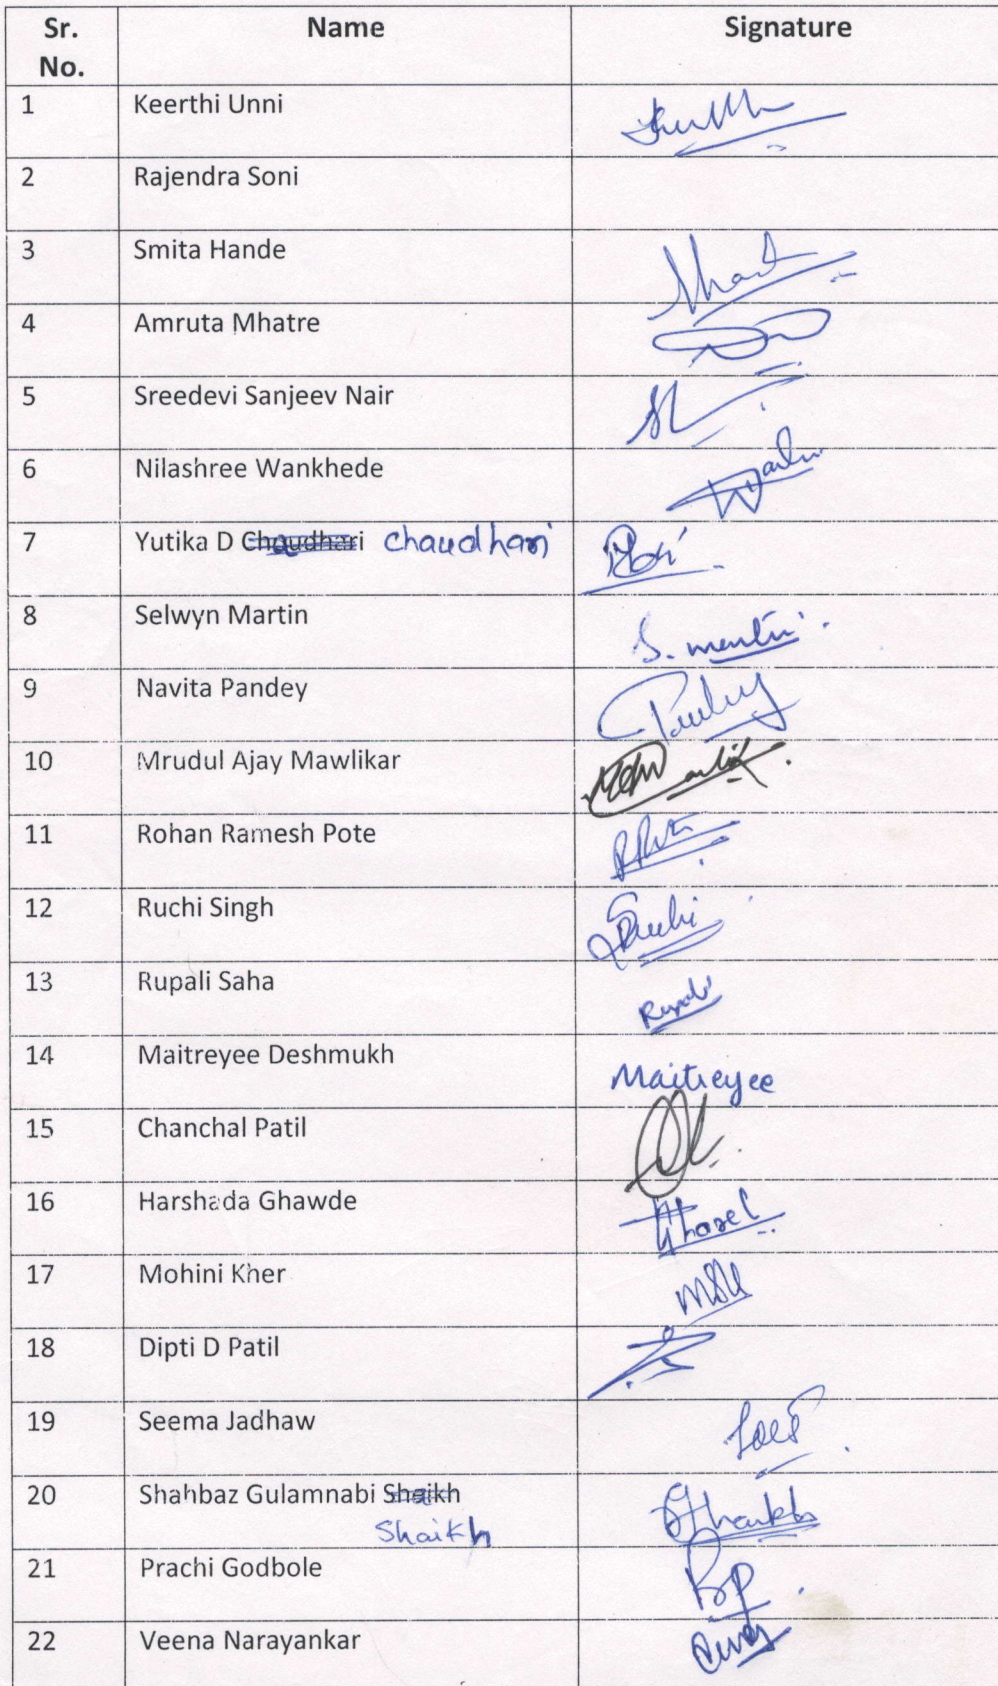 Sr. No. Name Signature
1 Keerthi Unni
2 Rajendra Soni
3 Smita Hande
4 Amruta Mhatre
5 Sreedevi Sanjeev Nair
6 Nilashree Wankhede
7 Yutika D Chaudhari chaudhari
8 Selwyn Martin
9 Navita Pandey
10 Mrudul Ajay Mawlikar
11 Rohan Ramesh Pote
12 Ruchi Singh
13 Rupali Saha
14 Maitreyee Deshmukh Maitreyee
15 Chanchal Patil
16 Harshada Ghawde
17 Mohini Kher
18 Dipti D Patil
19 Seema Jadhaw
20 Shahbaz Gulamnabi Sheikh
Shaikh
21 Prachi Godbole
22 Veena Narayankar